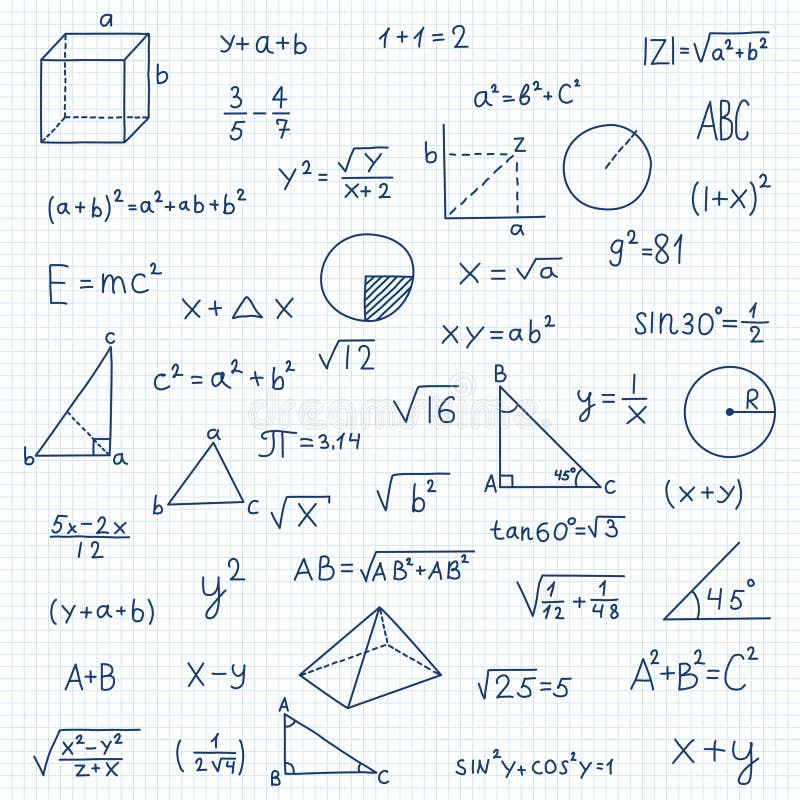 a
b
y+a+b
1+1=2
|Z|=√(a²+b²)
3/5 - 4/7
a²=в²+c²
ABC
b
z
a
y² = √y/(x+2)
(a+b)²=a²+ab+b²
(1+x)²
g²=81
E=mc²
x = √a
x + △ x
xy=ab²
sin30°=1/2
c
b
a
√12
c²=a²+b²
√16
B
A
C
45°
y=1/x
R
π=3,14
a
b
c
√x
√b²
(x+y)
(5x-2x)/12
tan60°=√3
AB=√(AB²+AB²)
y²
√(1/12 + 1/48)
45°
(y+a+b)
A+B
x-y
√25=5
A²+B²=C²
A
B
C
√((x²-y²)/(z+x))
(1/(2√4))
sin²y+cos²y=1
x+y